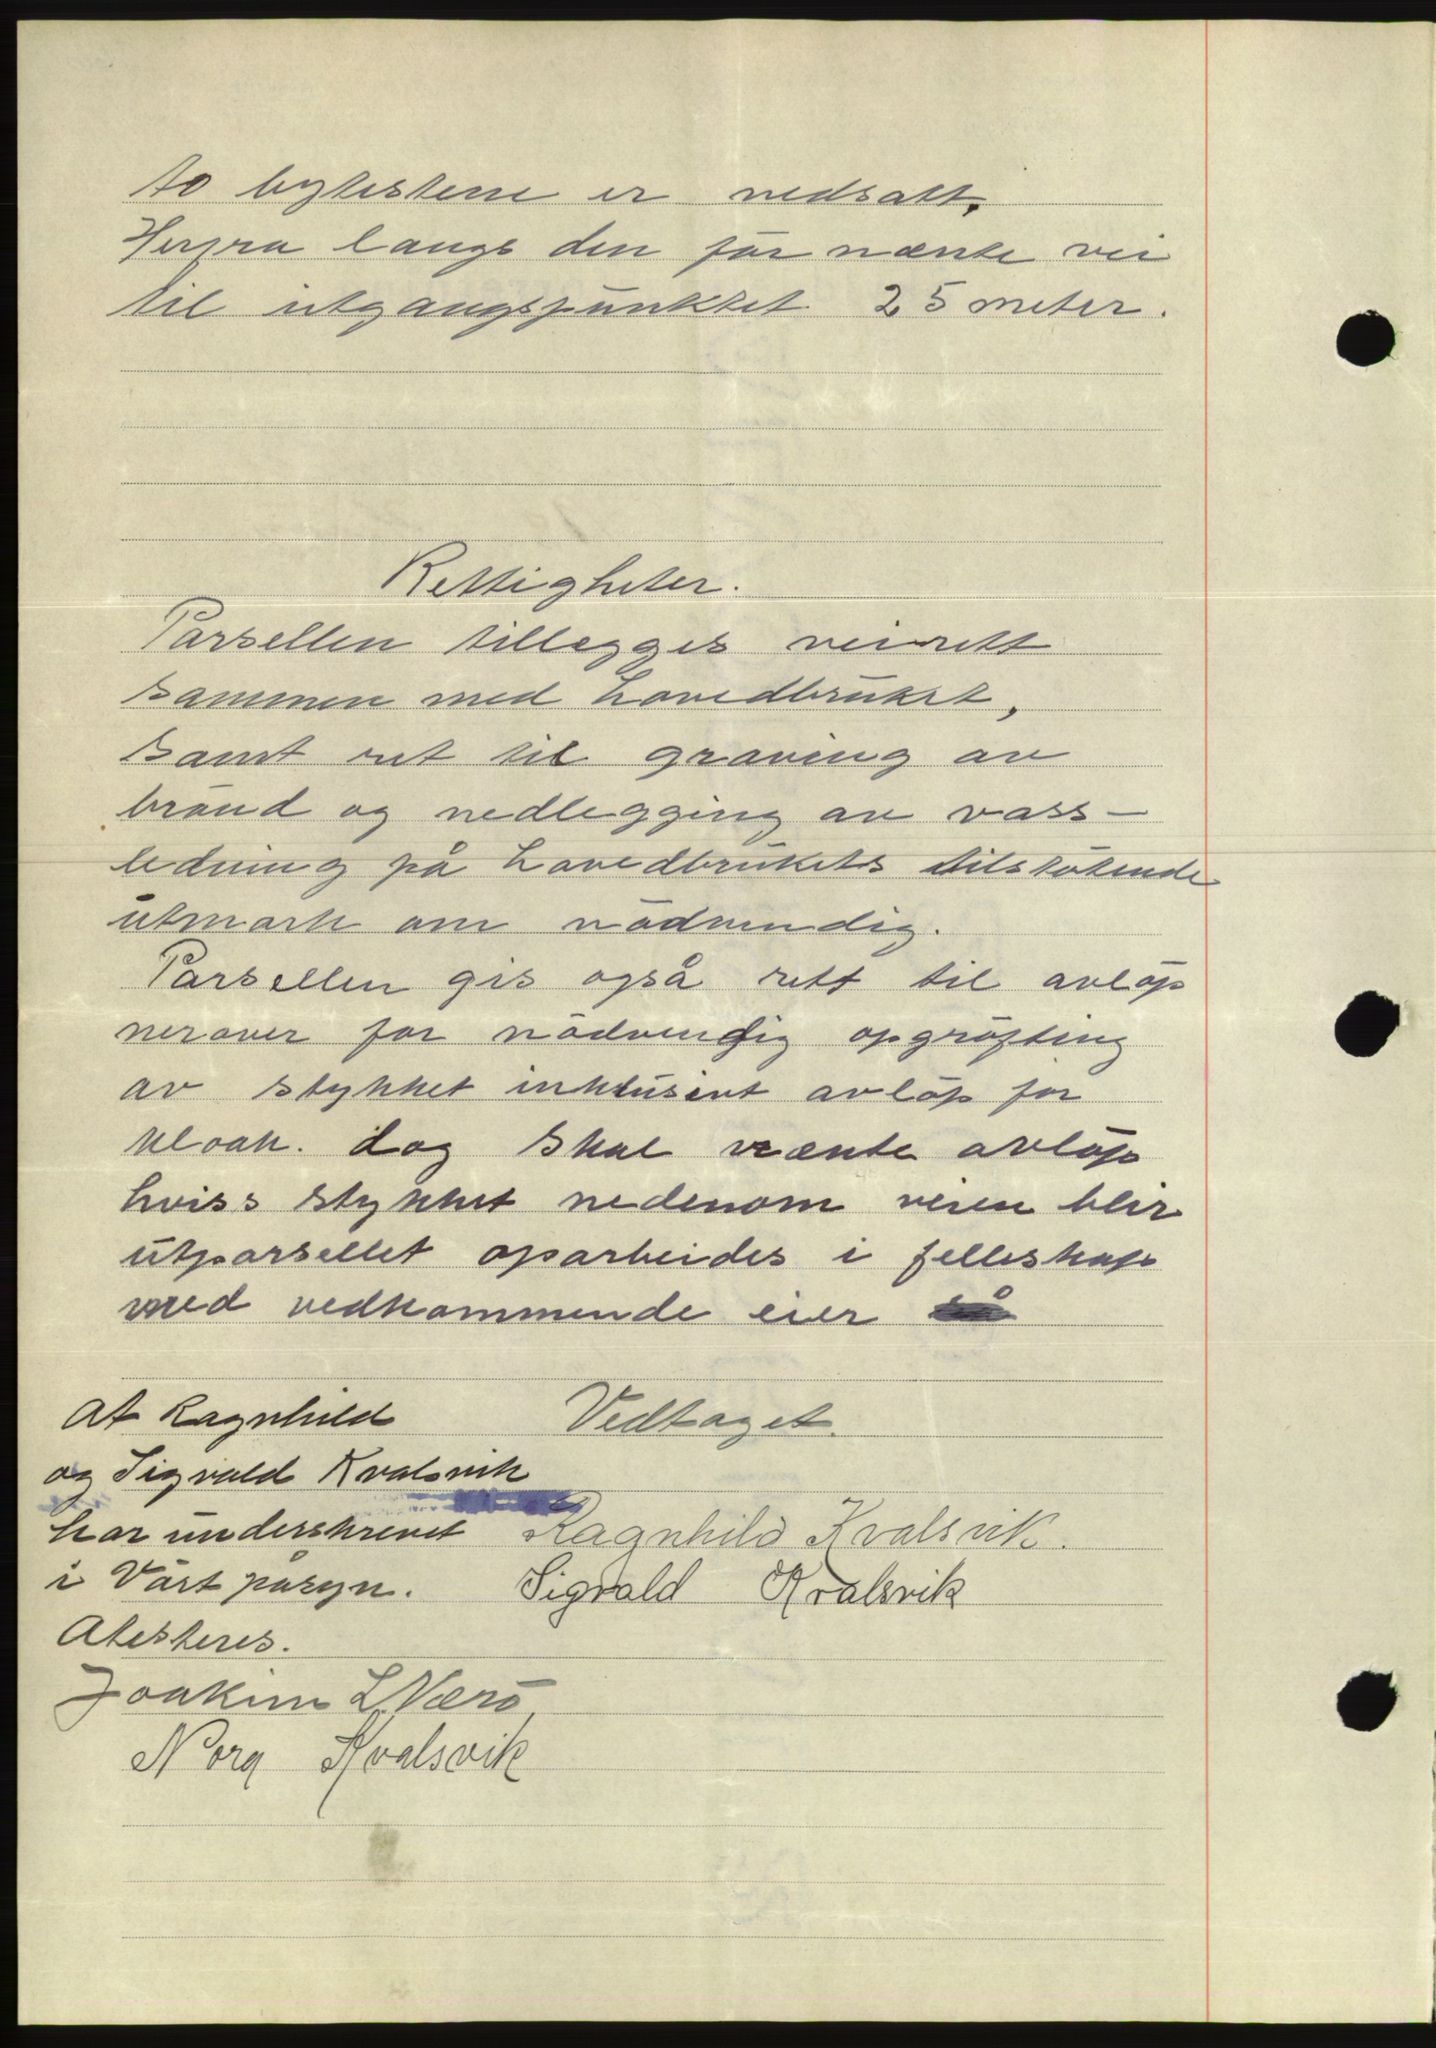 to bytestene er nedsatt.
Herfra langs den før nænte vei
til utgangspunktet 25 meter.
Rettigheter.
Parsellen tillegges veirett
sammen med hovedbruket,
samt ret til graving av
brønd og nedlegging av vass-
ledning på hovedbrukets tilstøtende
utmark om nødvendig.
Parsellen gis også rett til avløp
nerover for nødvendig opgrøfting
av stykket inklusivt avløp for
kloak. dog skal nænte avløp
hviss stykket nedenom veien blir
utparsellet oparbeides i felleskap
med vedkommende eier
At Ragnhild
og Sigvald Kvalsvik
har underskrevet
i Vårt påsyn.
Atesteres.
Joakim L Nærø
Nora Kvalsvik
Vedtaget.
Ragnhild Kvalsvik.
Sigvald Kvalsvik